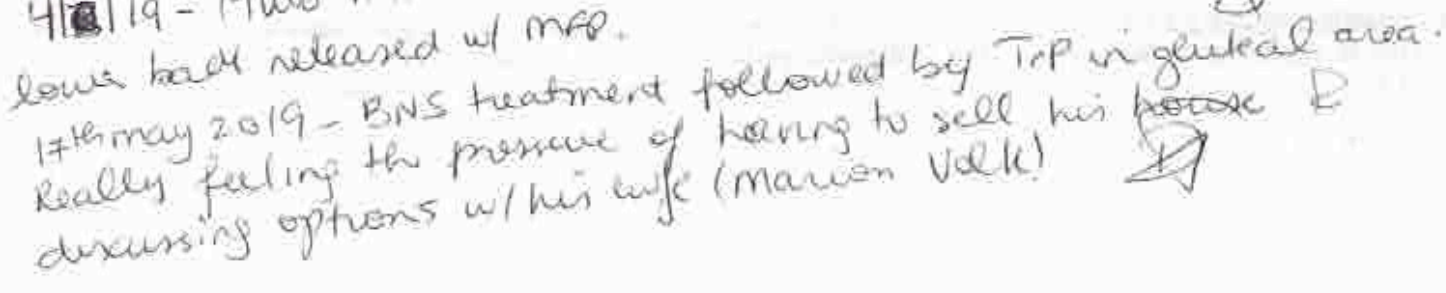 lower back released w/ MFR.
17th may 2019 - BNS treatment followed by TrP in gluteal area.
Really feeling the pressure of having to sell his house
discussing options w/ his wife (Marion Valk)